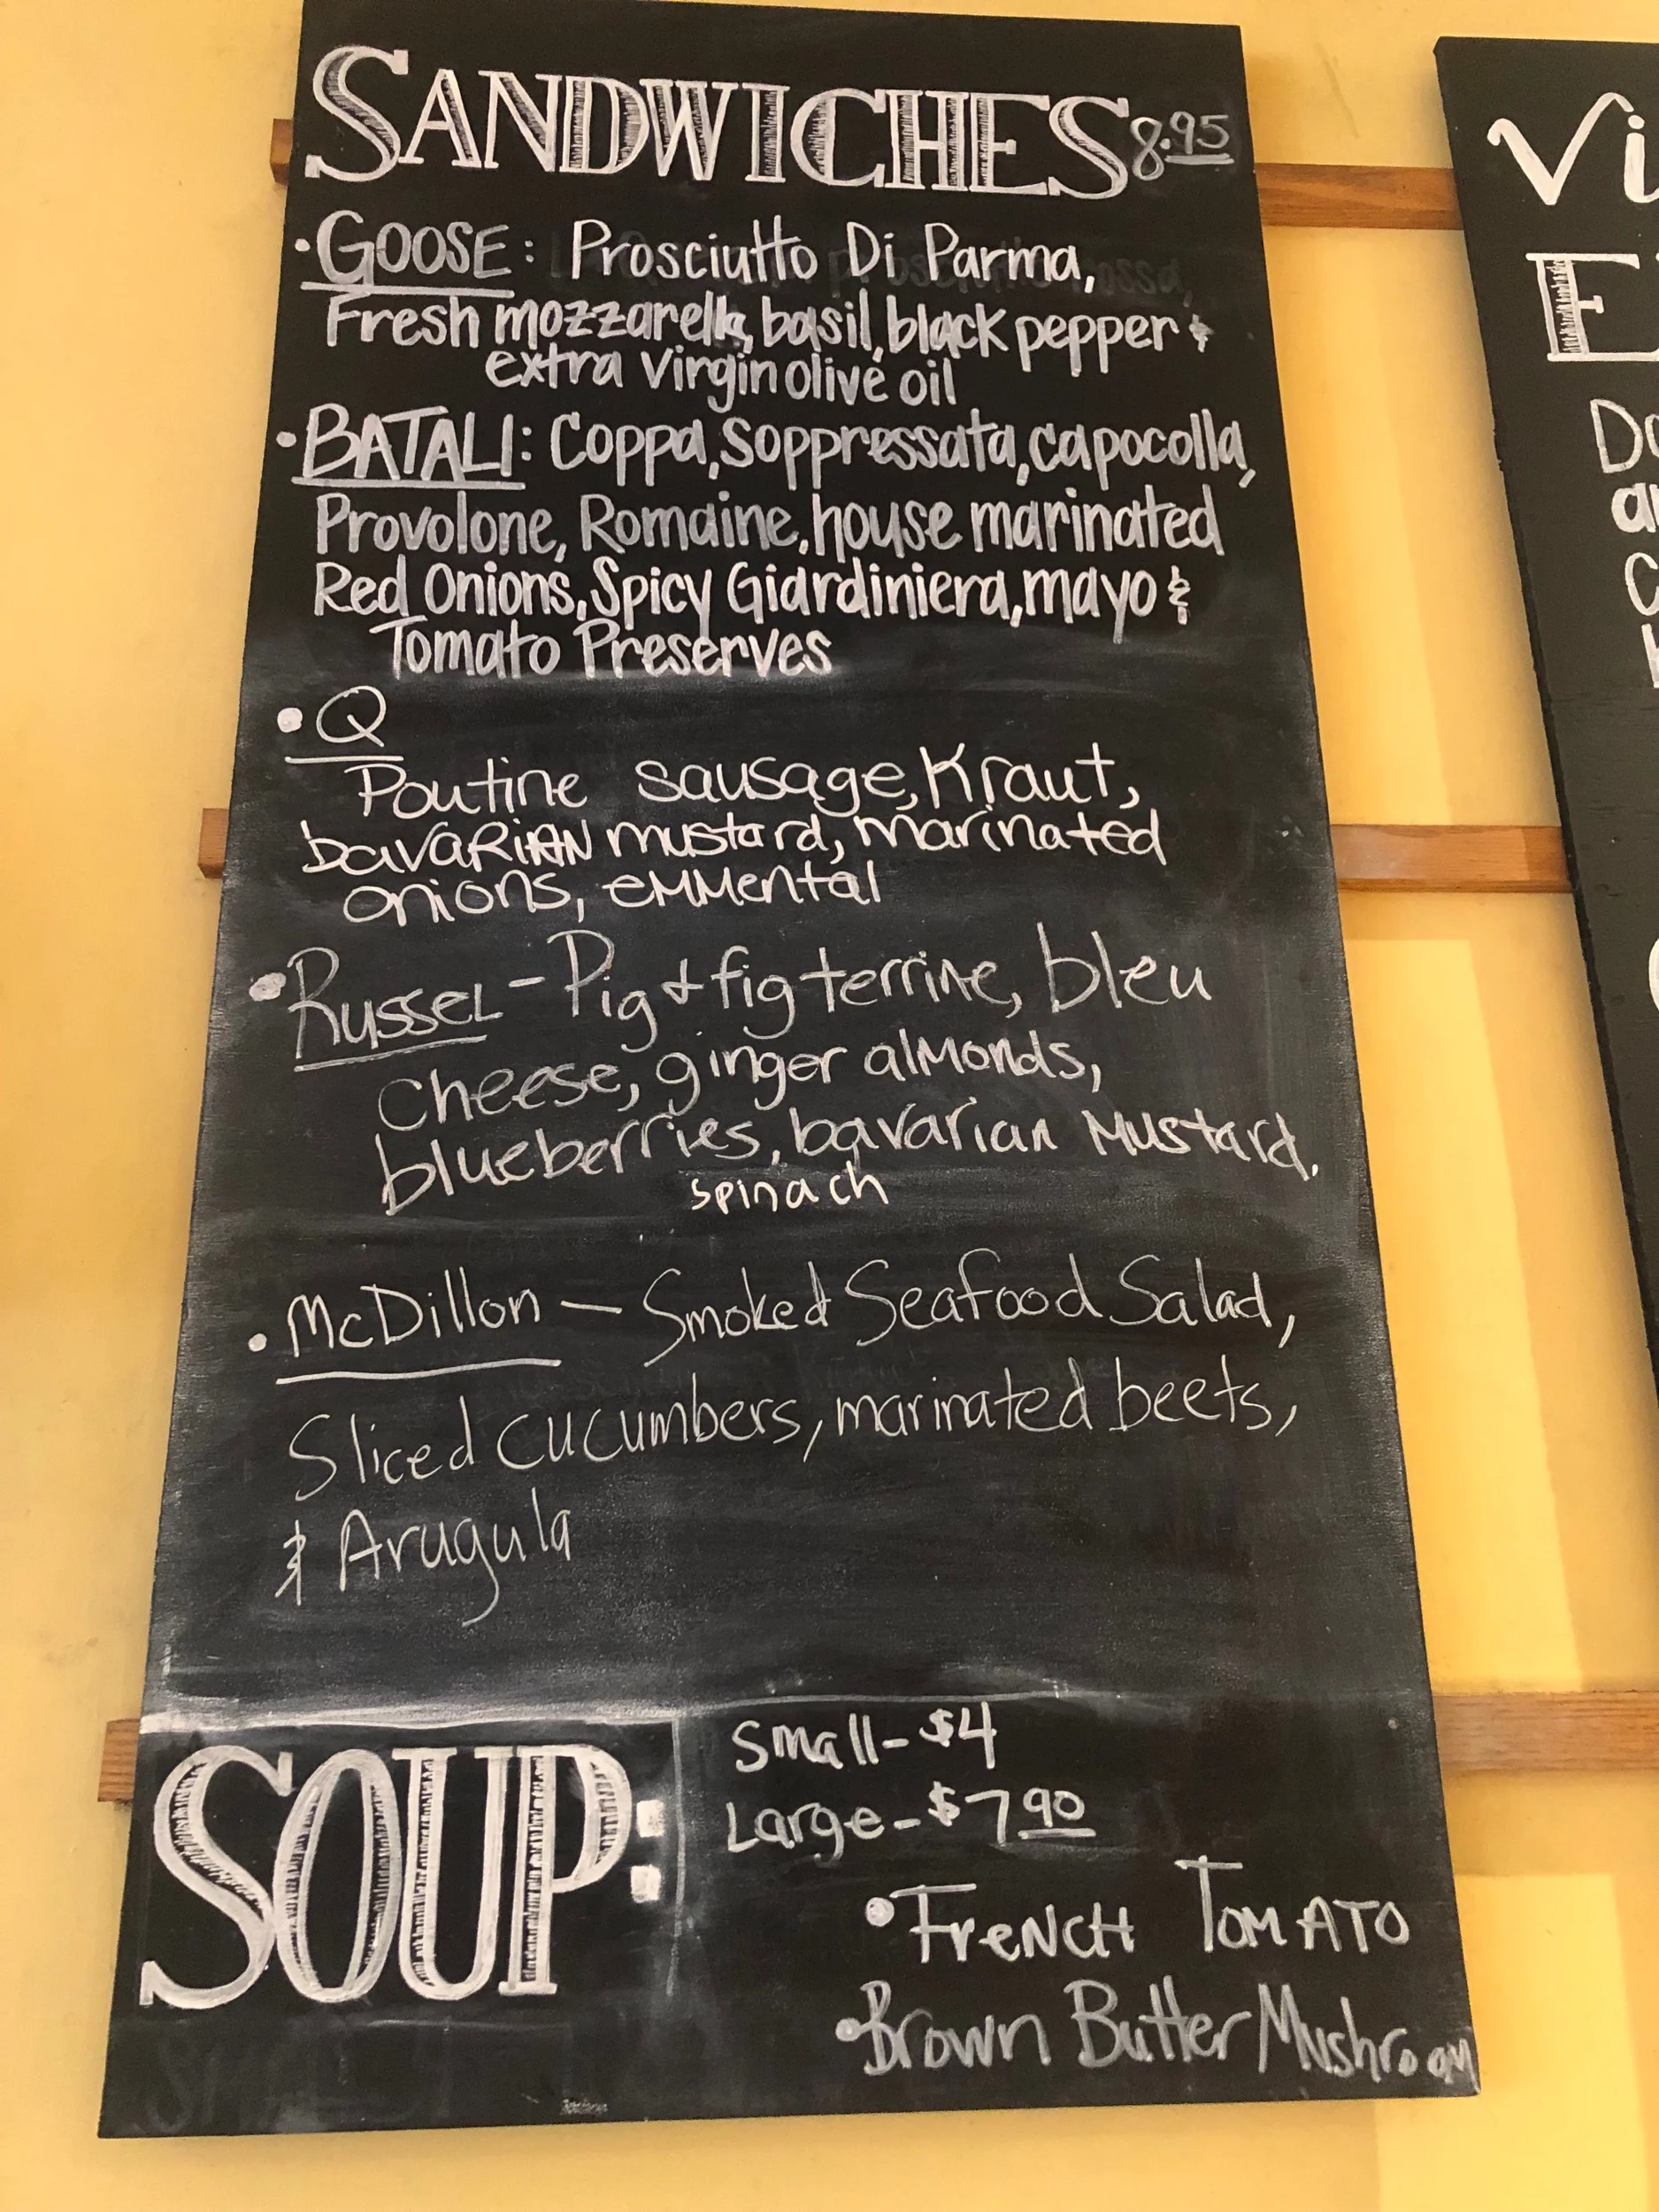 SANDWICHES 8.95
• GOOSE: Prosciutto Di Parma,
Fresh mozzarella, basil, black pepper &
extra virgin olive oil
• BATALI: Coppa, Soppressata, capocolla,
Provolone, Romaine, house marinated
Red Onions, Spicy Giardiniera, mayo &
Tomato Preserves
• Q
Poutine sausage, Kraut,
bavaRiAN mustard, marinated
onions, emmental
• Russel - Pig & fig terrine, bleu
Cheese, ginger almonds,
blueberries, bavarian Mustard.
spinach
• McDillon — Smoked Seafood Salad,
Sliced cucumbers, marinated beets,
& Arugula
SOUP:
Small - $4
Large - $7 90
• French Tomato
• Brown Butter Mushroom
Vi
E